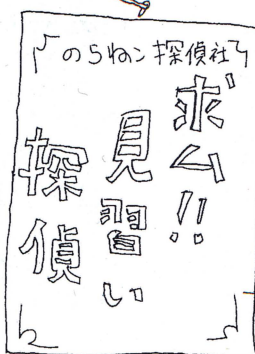 のらねこ探偵社
求ム!!
見習い
探偵